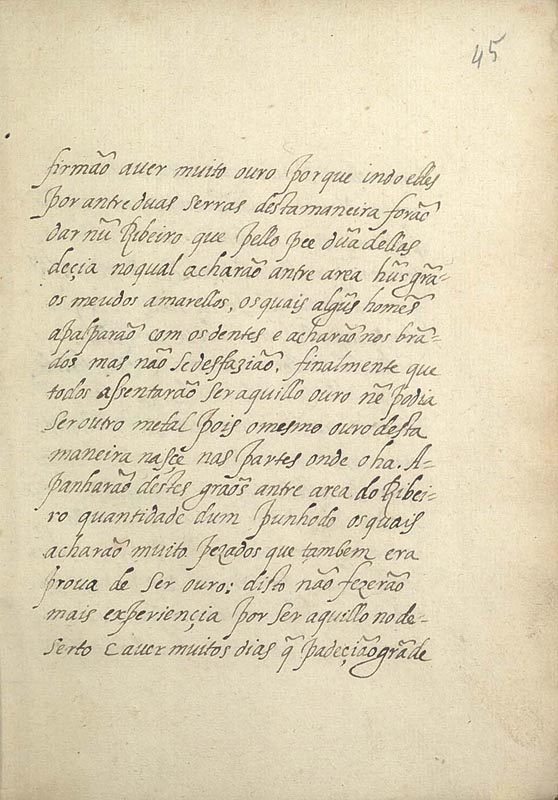 45
firmão aver muito ouro porque indo elles
por antre duas serras desta maneira forão
dar nũ Ribeiro que pello pee dũa dellas
deçia no qual acharão antre area hũs grã-
os meudos amarellos, os quais algũs homẽs
apalparão com os dentes e acharãonos brã-
dos mas não se desfazião. finalmente que
todos assentarão ser aquillo ouro nẽ podia
ser outro metal pois o mesmo ouro desta
maneira nasçe nas partes onde o ha. A-
panharão destes grãos antre area do Ribei-
ro quantidade dum punhado os quais
acharão muito pezados que tambem era
prova de ser ouro: disto não fezerão
mais experiençia por ser aquillo no de-
serto e aver muitos dias q̃ padeçião grãde